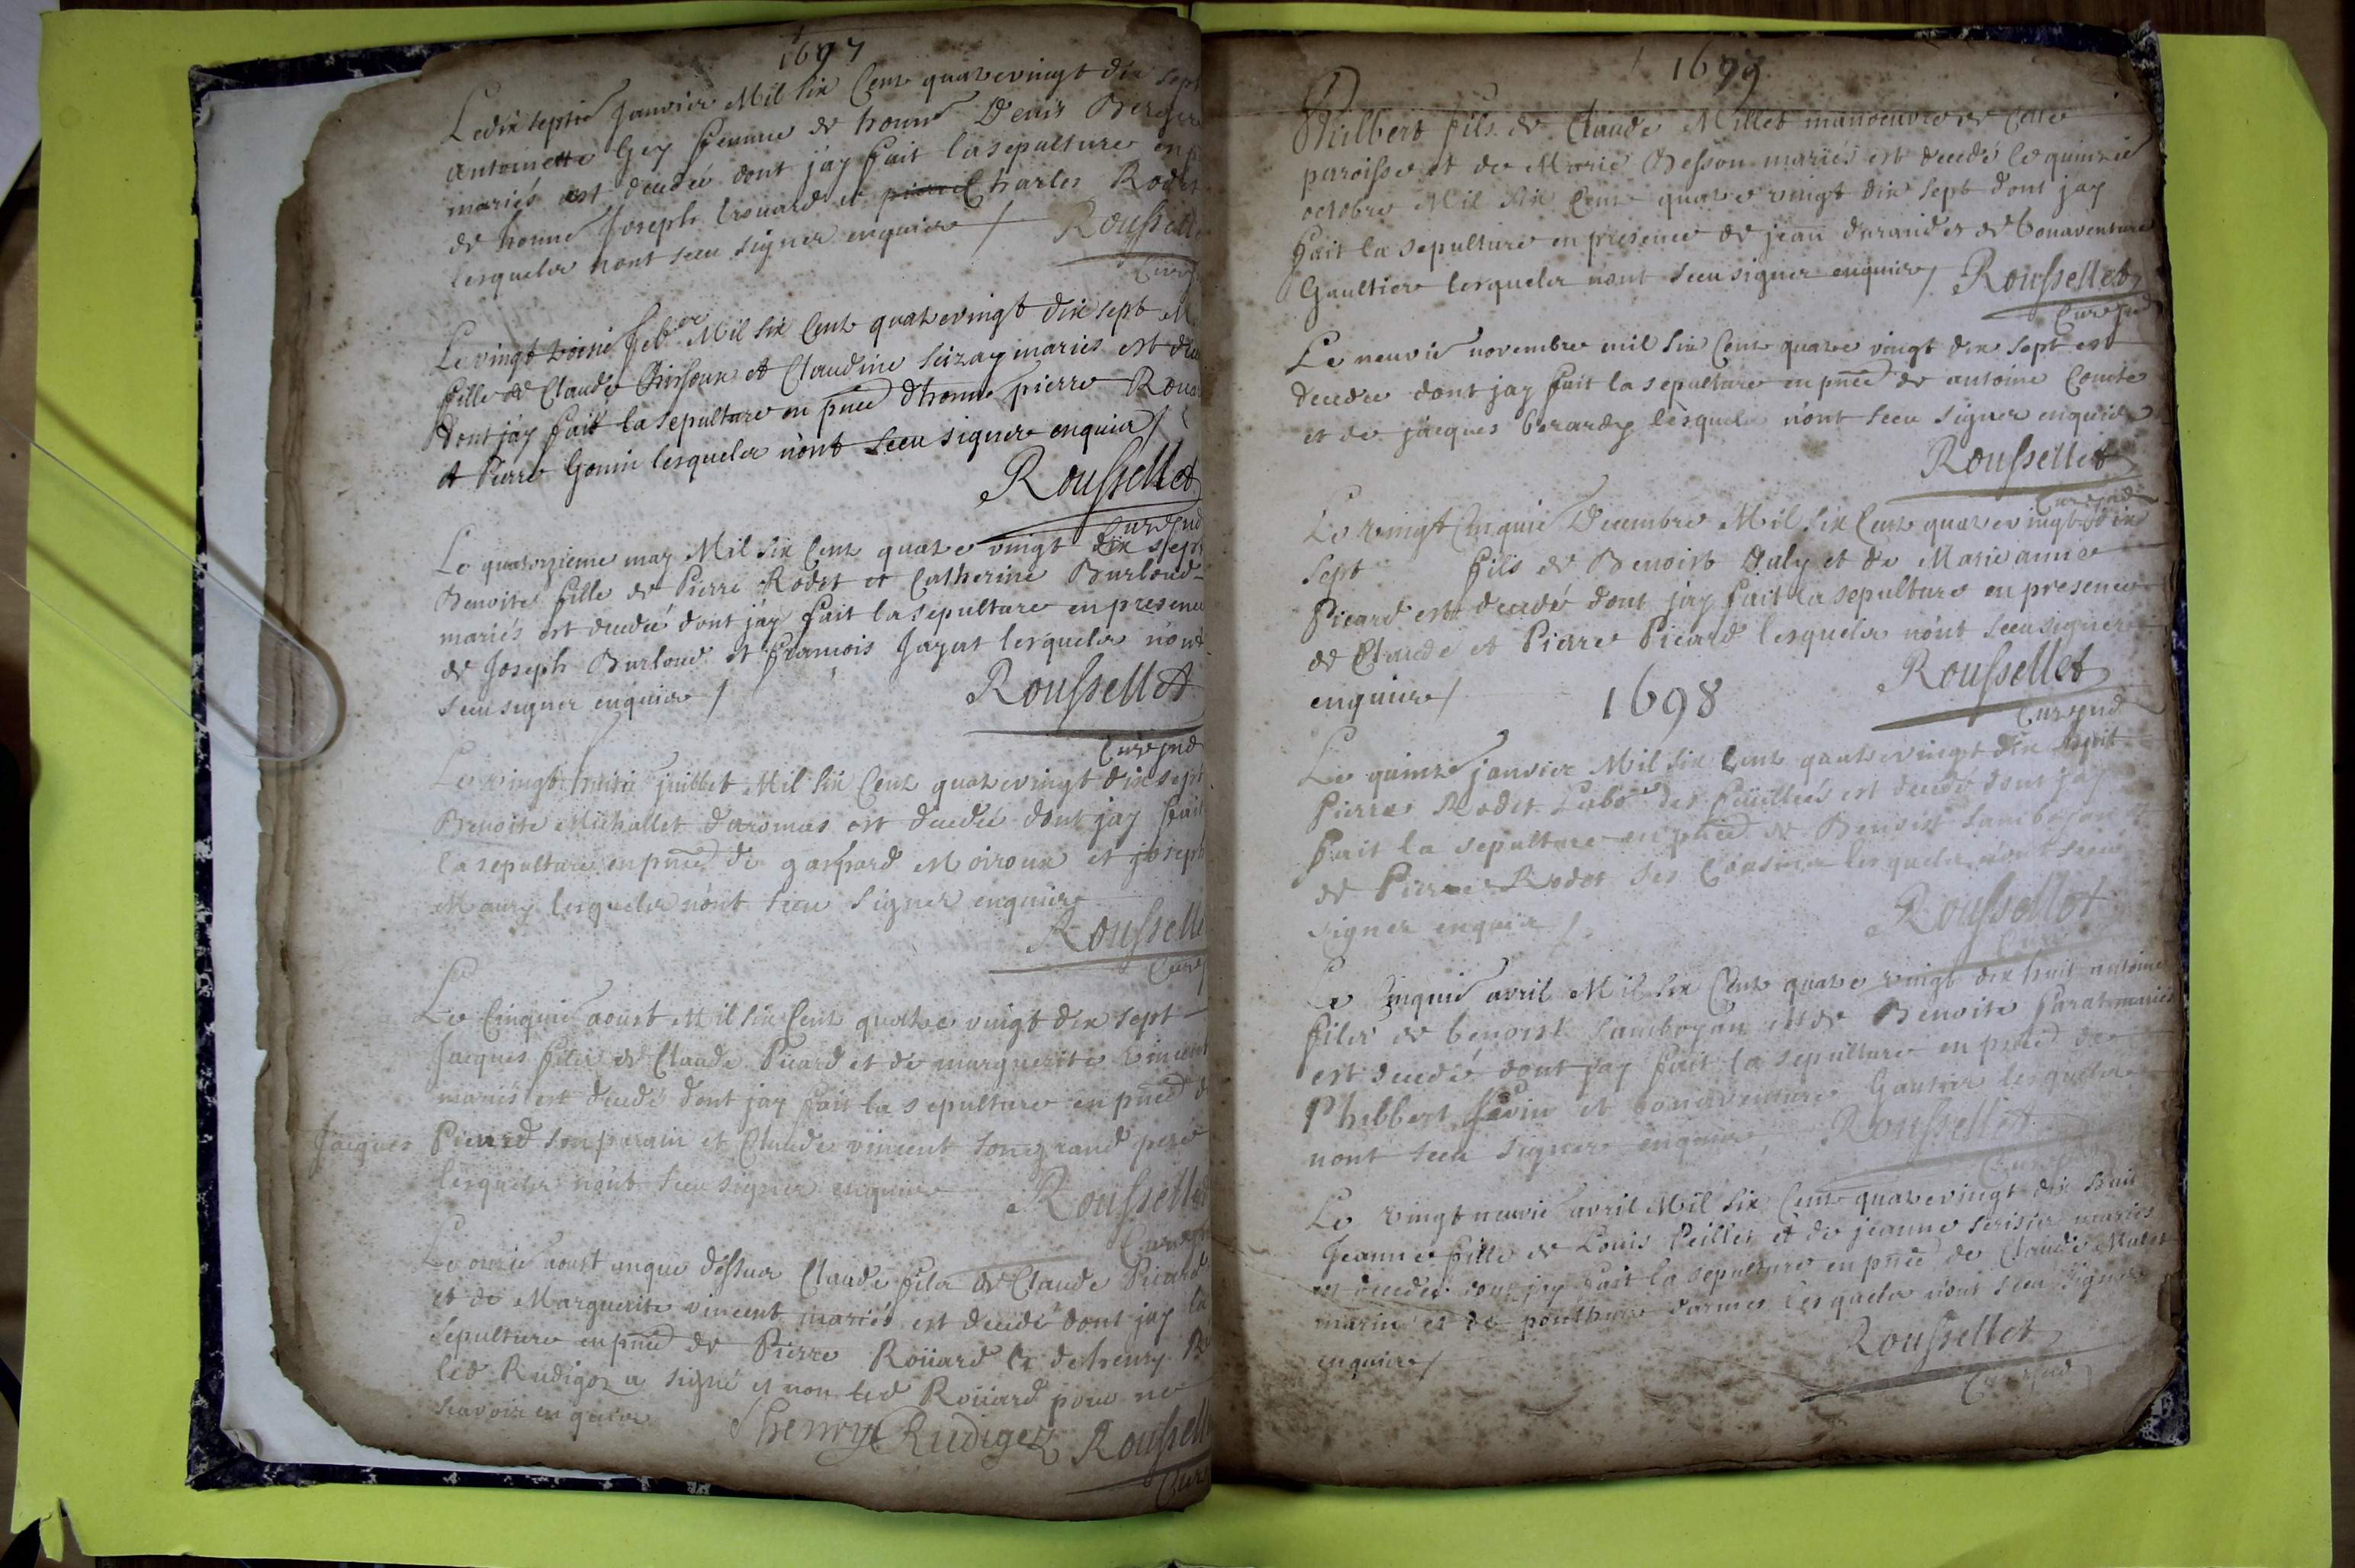 1697
Le dix septie Janvier Mil six Cent quatrevingt dix sept
Antoinette Gey femme de honne Denis Berger
mariés est decedée dont j'ay fait la sepulture en p
de honne Joseph Erouard et pierre Charles Rodet
lesquels n'ont sceu signer enquire / Roussellet
Curé
Le vingt troisie feb.er Mil six Cent quatrevingt dix sept M
fille de Claude Brissoux et Claudine Seizay mariés est dece
Dont j'ay fait la sepulture en pnce d'honne pierre Roua
et Pierre Gonin lesquels n'ont sceu signer enquire /
Roussellet
Curé jud
Le quatorzieme may Mil six Cent quatre vingt dix sept
Benoite fille de Pierre Rodet et Catherine Burloud
mariés est decedée dont j'ay fait la sepulture en presence
de Joseph Burloud et francois Jayat lesquels n'ont
sceu signer enquire / Roussellet
Curé jud
Le vingt huitie juillet Mil six Cent quatrevingt dix sept
Benoite Michallet daromas est decedée dont j'ay fait
la sepulture en pnce de gaspard Moiroux et joseph
Maury lesquels n'ont sceu signer enquire
Roussellet
Curé
Le Cinquie aoust Mil six Cent quatre vingt dix sept
Jacques fils de Claude Picard et de marguerite Vincent
mariés est decedé dont j'ay fait la sepulture en pnce de
Jacques Picard son parain et Claude vincent son grand pere
lesquels n'ont sceu signer enquire Roussellet
Curé jud
Le onzie aoust anque dessus Claude fils de Claude Picard
et de Marguerite vincent mariés est decedé dont j'ay la
sepulture en pnce de Pierre Roüard et de henry
led Rudigoz a signé et non led Roüard pour ne
scavoir enquire Shenry Rudigoz Roussellet
Curé
1699
Philbert fils de Claude Millet manoeuvre de cette
paroisse et de Marie Besson mariés est decedé le quinzie
octobre Mil six Cent quatre vingt dix sept dont jay
fait la sepulture en presence de jean durand et de bonaventure
Gaultier lesquels n'ont sceu signer enquire / Roussellet
Curé jud
Le neuvie novembre mil six Cent quatre vingt dix sept est
decedée dont jay fait la sepulture en pnce de antoine Comte
et de jacques berardy lesquels n'ont sceu signer enquire
Roussellet
Curé jud
Le vingt Cinquie Decembre Mil six Cent quatrevingt dix
sept fils de Benoist July et de Marie anne
Picard est decedé dont jay fait la sepulture en presence
de Claude et Pierre Picard lesquels n'ont sceu signer
enquire / Roussellet
1698
Curé jud
Le quinze janvier Mil six Cent quatrevingt dix huit
Pierre Rodet Labo.r des feüillées est decedé dont jay
fait la sepulture en pnce de Benoist Sambojon et
de Pierre Rodet ses Cousins lesquels n'ont sceu
signer enquire / Roussellet
Curé
Le Cinquie avril Mil six Cent quatre vingt dix huit antoine
fils de benoist Sambojon et de Benoite farat mariés
est decedé dont jay fait la sepulture en pnce de
Philbbert favin et bonaventure Gautier lesquels
nont sceu signer enquire, Roussellet
Curé jud
Le vingt neuvie avril Mil six Cent quatrevingt dix huit
Jeanne fille de Louis Peillet et de jeanne Serisier mariés
est decedée dont jay fait la sepulture en pnce de Claude Millet
marin et de ponthus darmes lesquels n'ont sceu signer
enquire / Roussellet
Curé jud